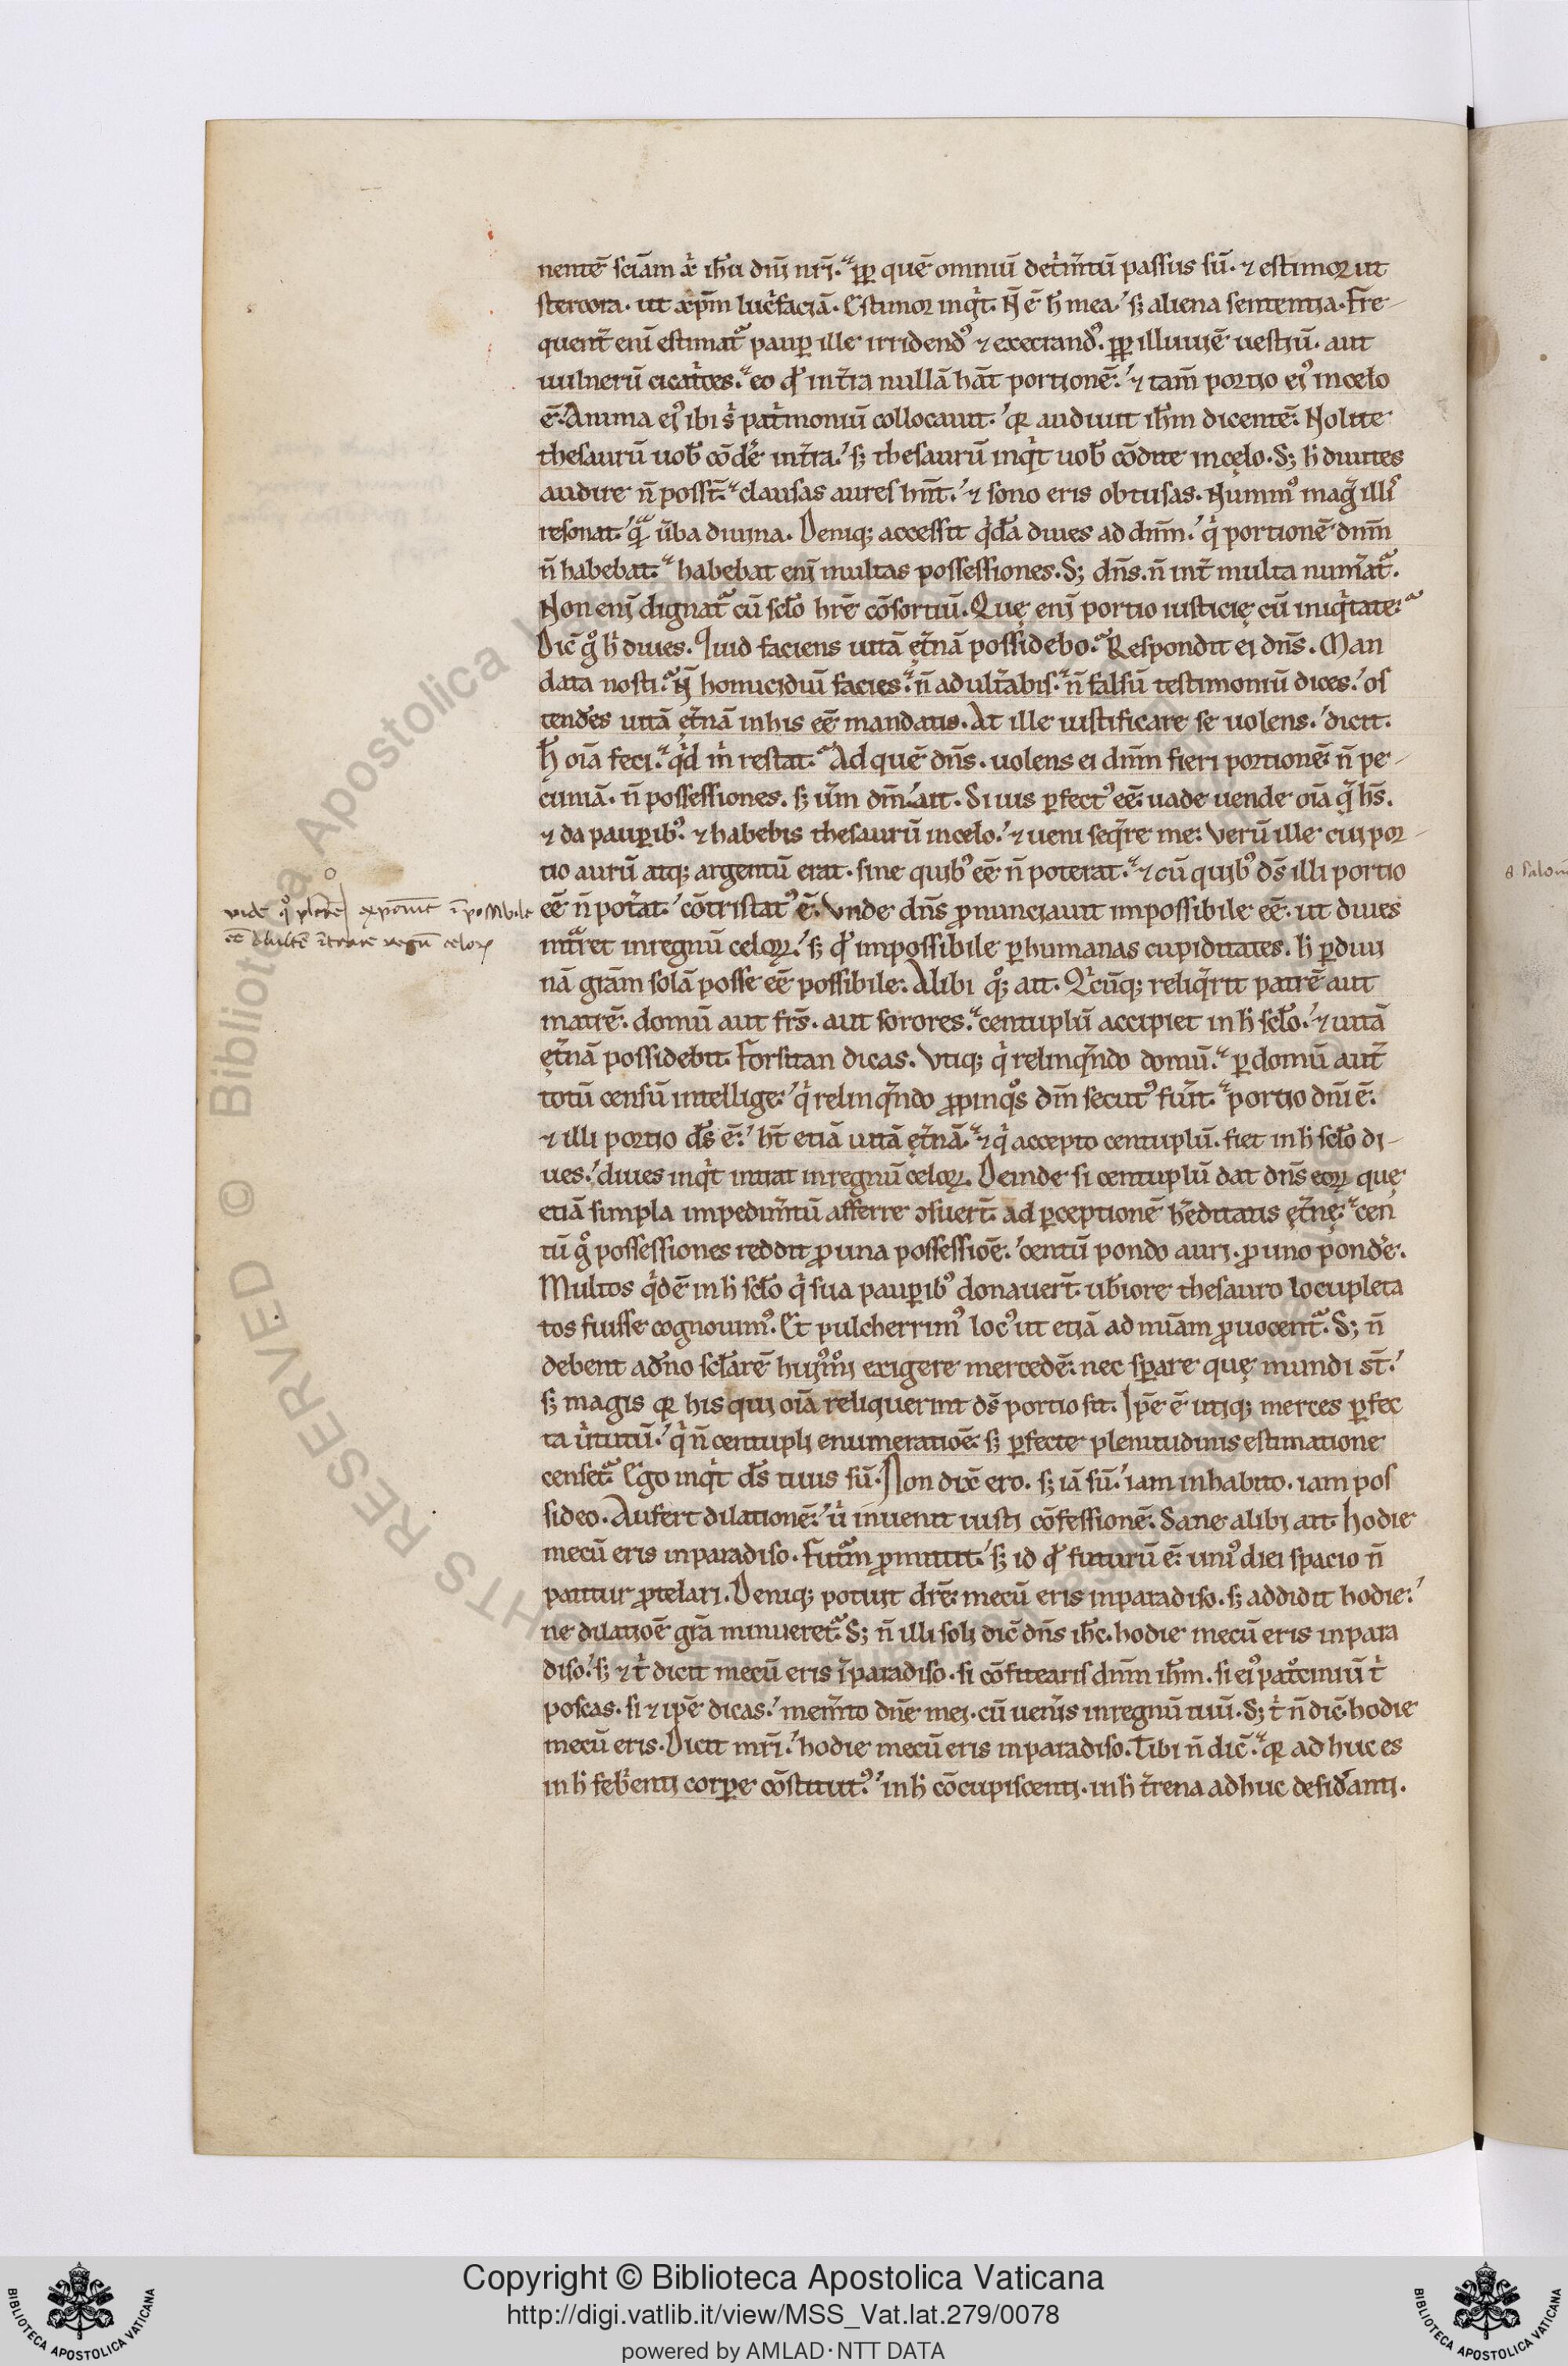 nentē sciām xp̄i ih̄u dn̄i nr̄i. pp̄ quē omniū detrīm̄tū passus sū. ⁊ estimor ut
stercora. ut xp̄m lucͥfaciā. Estimor inqͥt. N̄ ē h̄ mea. sꝫ aliena sententia. Fre-
quent̄ enī estimat᷑ paup̄ ille irridendꝰ ⁊ execrandꝰ. pp̄ illuuiē uestiū. aut
uulnerū cicatͥces. eo qđ in t̄ra nullā hāt portionē. ⁊ tam̄ portio eiꝰ in celo
ē. Anima eiꝰ ibi s̄ patͥmoniū collocauit. qr audiuit ih̄m dicentē. Nolite
thesaurū uob̄ cōdēr in t̄ra. sꝫ thesaurū inqͥt uob̄ cōdite in cęlo. Sꝫ h̄ diuites
audire n̄ possт̄. clausas aures hn̄t. ⁊ sono eris obtusas. Nummꝰ magͥ illiꝰ
resonat. qᷓ ūba diuina. Deniqꝫ accessit qͥdā diues ad dn̄m. qͥ portionē dn̄m
n̄ habebat. habebat enī multas possessiones. Sꝫ dn̄s. n̄ int̄ multa num̄at᷑.
Non enī dignat᷑ cū sc̄lo hr̄e cōsortiū. Quę enī portio iusticię cū iniqͥtate.
Dic̄ gͦ h̄ diues. Quid faciens uitā ęt̄nā possidebo. Respondit ei dn̄s. Man
data nosti. N̄ homicidiū facies. n̄ adult̄abis. n̄ falsū testimoniū dices. os
tendēs uitā ęt̄nā in his eē mandatis. At ille iustificare se uolens. dicit.
h̄ oīa feci. qͥd m̄ restat. Ad quē dn̄s. uolens ei dn̄m fieri portionē. n̄ pe-
cuniā. n̄ possessiones. sꝫ ūm dm̄. ait. Si uis ꝑfectꝰ eē. uade uende oīa qͣ hs̄.
⁊ da pauꝑibꝰ. ⁊ habebis thesaurū in celo. ⁊ ueni seqͣre me. Verū ille cui por-
tio aurū atqꝫ argentū erat. sine quibꝰ eē n̄ poterat. ⁊ cū quibꝰ ds̄ illi portio
eē n̄ pot̄at. cōtristatꝰ ē. Vnde dn̄s ꝓnunciauit impossibile eē. ut diues
intͣret in regnū celoꝝ. sꝫ qđ impossibile ꝑ humanas cupiditates. h̄ ꝑ diui
nā grām solā posse eē possibile. Alibi qͦꝫ ait. Qͥcūqꝫ reliqͣrit patrē aut
matrē. domū aut frs̄. aut sorores. centuplū accipiet in h̄ sc̄lo. ⁊ uitā
ęt̄nā possidebit. Forsitan dicas. Vtiqꝫ qͥ relinqͣndo domū. ꝑ domū aut̄
totū censū intellige. qͥ relinqͣndo ꝓpinqͦs dm̄ secutꝰ fuīt. portio dn̄i ē.
⁊ illi portio ds̄ ē. ht̄ etiā uitā ęt̄nā. ⁊ qͥ accepto centuplū. fiet in h̄ sc̄lo di-
ues. diues inqͥt intrat in regnū celoꝝ. Deinde si centuplū dat dn̄s eoꝝ quę
etiā simpla impedim̄tū afferre ↄsuert̄. ad ꝑceptionē hēditatis ęt̄nę. cen
tū gͦ possessiones reddit ꝓ una possessiōe. centū pondo auri. ꝓ uno pondēr.
Multos qͥdē in h̄ sc̄lo qͥ sua pauꝑibꝰ donauert̄. ub̄iore thesauro locupleta
tos fuisse cognouimꝰ. Et pulcherrimꝰ locꝰ ut etiā ad mīam ꝓuocent᷑. Sꝫ n̄
debent ad dn̄o sc̄larē huiꝰmōi exigere mercedē. nec sꝑare quę mundi st̄.
sꝫ magis qr his qui oīa reliquerint ds̄ portio sit. Ip̄e ē utiqꝫ merces ꝑfec
ta ūtutū. qͥ n̄ centupli enumeratiōe. sꝫ ꝑfecte plenitudinis estimatione
censet᷑. Ego inqͥt ds̄ tuus sū. Non dix̄ ero. sꝫ iā sū. iam inhabito. iam pos
sideo. Aufert dilationē. uͥ inuenit iusti cōfessionē. Sane alibi ait. hodie
mecū eris in paradiso. Futuͣm ꝓmittit. sꝫ id qđ futurū ē. uniꝰ diei spacio n̄
patitur ꝓtelari. Deniqꝫ potuit dr̄e. mecū eris in paradiso. sꝫ addidit hodie.
ne dilatiōe grā minueret᷑. Sꝫ n̄ illi soli dic̄ dn̄s ih̄c. hodie mecū eris in para
diso. sꝫ ⁊ tͥ dicit mecū eris ī paradiso. si cōfitearis dn̄m ih̄m. si eiꝰ patͦciniū tͥ
poscas. si ⁊ ip̄e dicas. mem̄to dn̄e mei. cū ueīis in regnū tuū. Sꝫ tͥ n̄ dic̄. hodie
mecū eris. Dicit mr̄i. hodie mecū eris in paradiso. Tibi n̄ dic̄. qr ad huc es
in h̄ feb̄enti corꝑe cōstitutꝰ. in h̄ cōcupiscenti. in h̄ t̄rena ad huc desid̄anti.
vidē qͦ exponit īpossibile
eē diuitē ītrare regnū celoꝝ
Copyright © Biblioteca Apostolica Vaticana
http://digi.vatlib.it/view/MSS_Vat.lat.279/0078
powered by AMLAD·NTT DATA
BIBLIOTECA APOSTOLICA VATICANA
BIBLIOTECA APOSTOLICA VATICANA